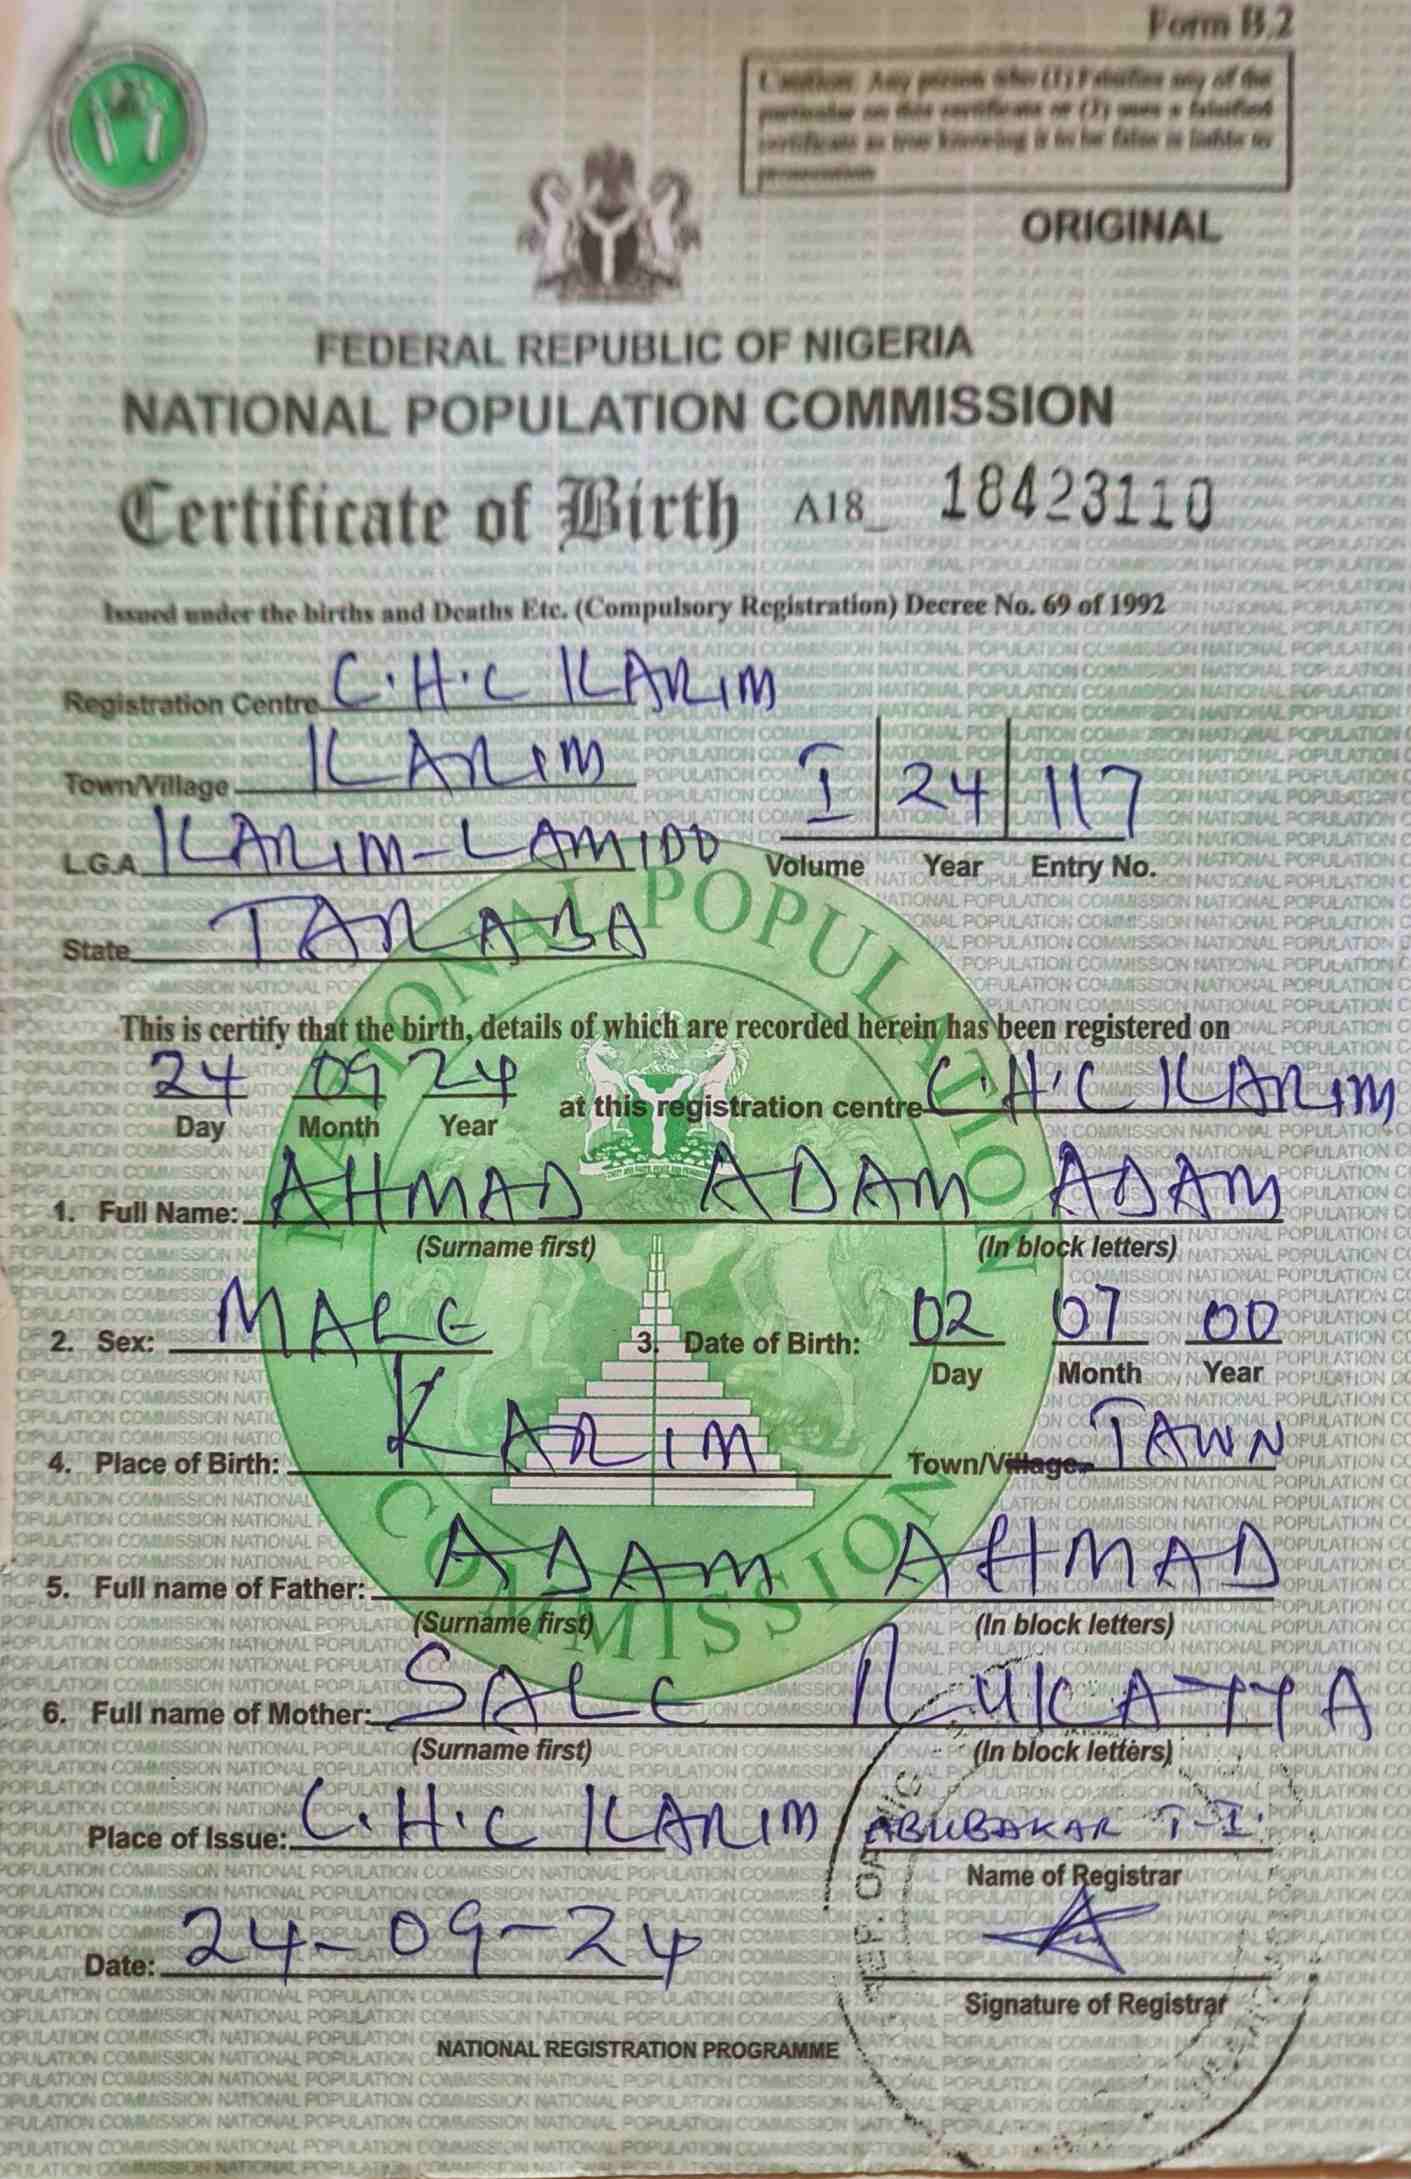 Form B.2
Caution: Any person who (1) Falsifies any of the
particular on this certificate or (2) uses a falsified
certificate as true knowing it to be false is liable to
prosecution
ORIGINAL
FEDERAL REPUBLIC OF NIGERIA
NATIONAL POPULATION COMMISSION
Certificate of Birth A18_ 18423110
Issued under the births and Deaths Etc. (Compulsory Registration) Decree No. 69 of 1992
Registration Centre C.H.C KARIM
Town/Village KARIM
I 24 117
L.G.A KARIM-LAMIDO
Volume Year Entry No.
State TARABA
This is certify that the birth, details of which are recorded herein has been registered on
24 09 24 at this registration centre C.H.C KARIM
Day Month Year
1. Full Name: AHMAD ADAM ADAM
(Surname first) (In block letters)
2. Sex: MALE 3. Date of Birth: 02 07 00
Day Month Year
4. Place of Birth: KARIM Town/Village TAWN
5. Full name of Father: ADAM AHMAD
(Surname first) (In block letters)
6. Full name of Mother: SALE RUKAYYA
(Surname first) (In block letters)
Place of Issue: C.H.C KARIM ABUBAKAR T.I.
Name of Registrar
Date: 24-09-24
Signature of Registrar
NATIONAL REGISTRATION PROGRAMME
NATIONAL POPULATION COMMISSION